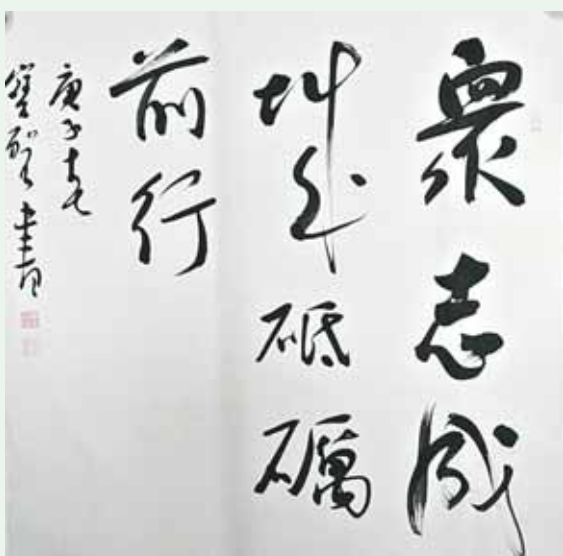 衆志成
城砥礪
前行
庚子春